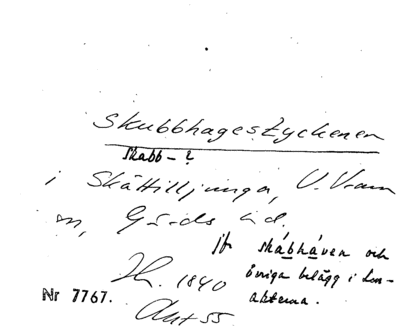 Skubbhagestyckenen
Skabb- ?
i Skättilljunga, V. Vram
sn, Gärds hd.
jfr skábháven och
övriga belägg i son-
akterna.
1840
Nr 7767.
Akt 55